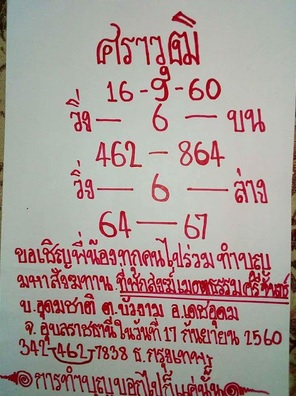 ศราวุฒิ
16-9-60
วิ่ง — 6 — บน
462 - 864
วิ่ง — 6 — ล่าง
64 — 67
ขอเชิญพี่น้องทุกคนไปร่วมทำบุญ
มหาสังฆทาน ที่พักสงฆ์
บ.อุดมชาติ ต.บัวงาม อ.เดชอุดม
จ.อุบลราชธานีในวันที่ 17 กันยายน 2560
342-462-7838 ธ.กรุงเทพฯ
การทำบุญบอกไปก็แค่นั้น